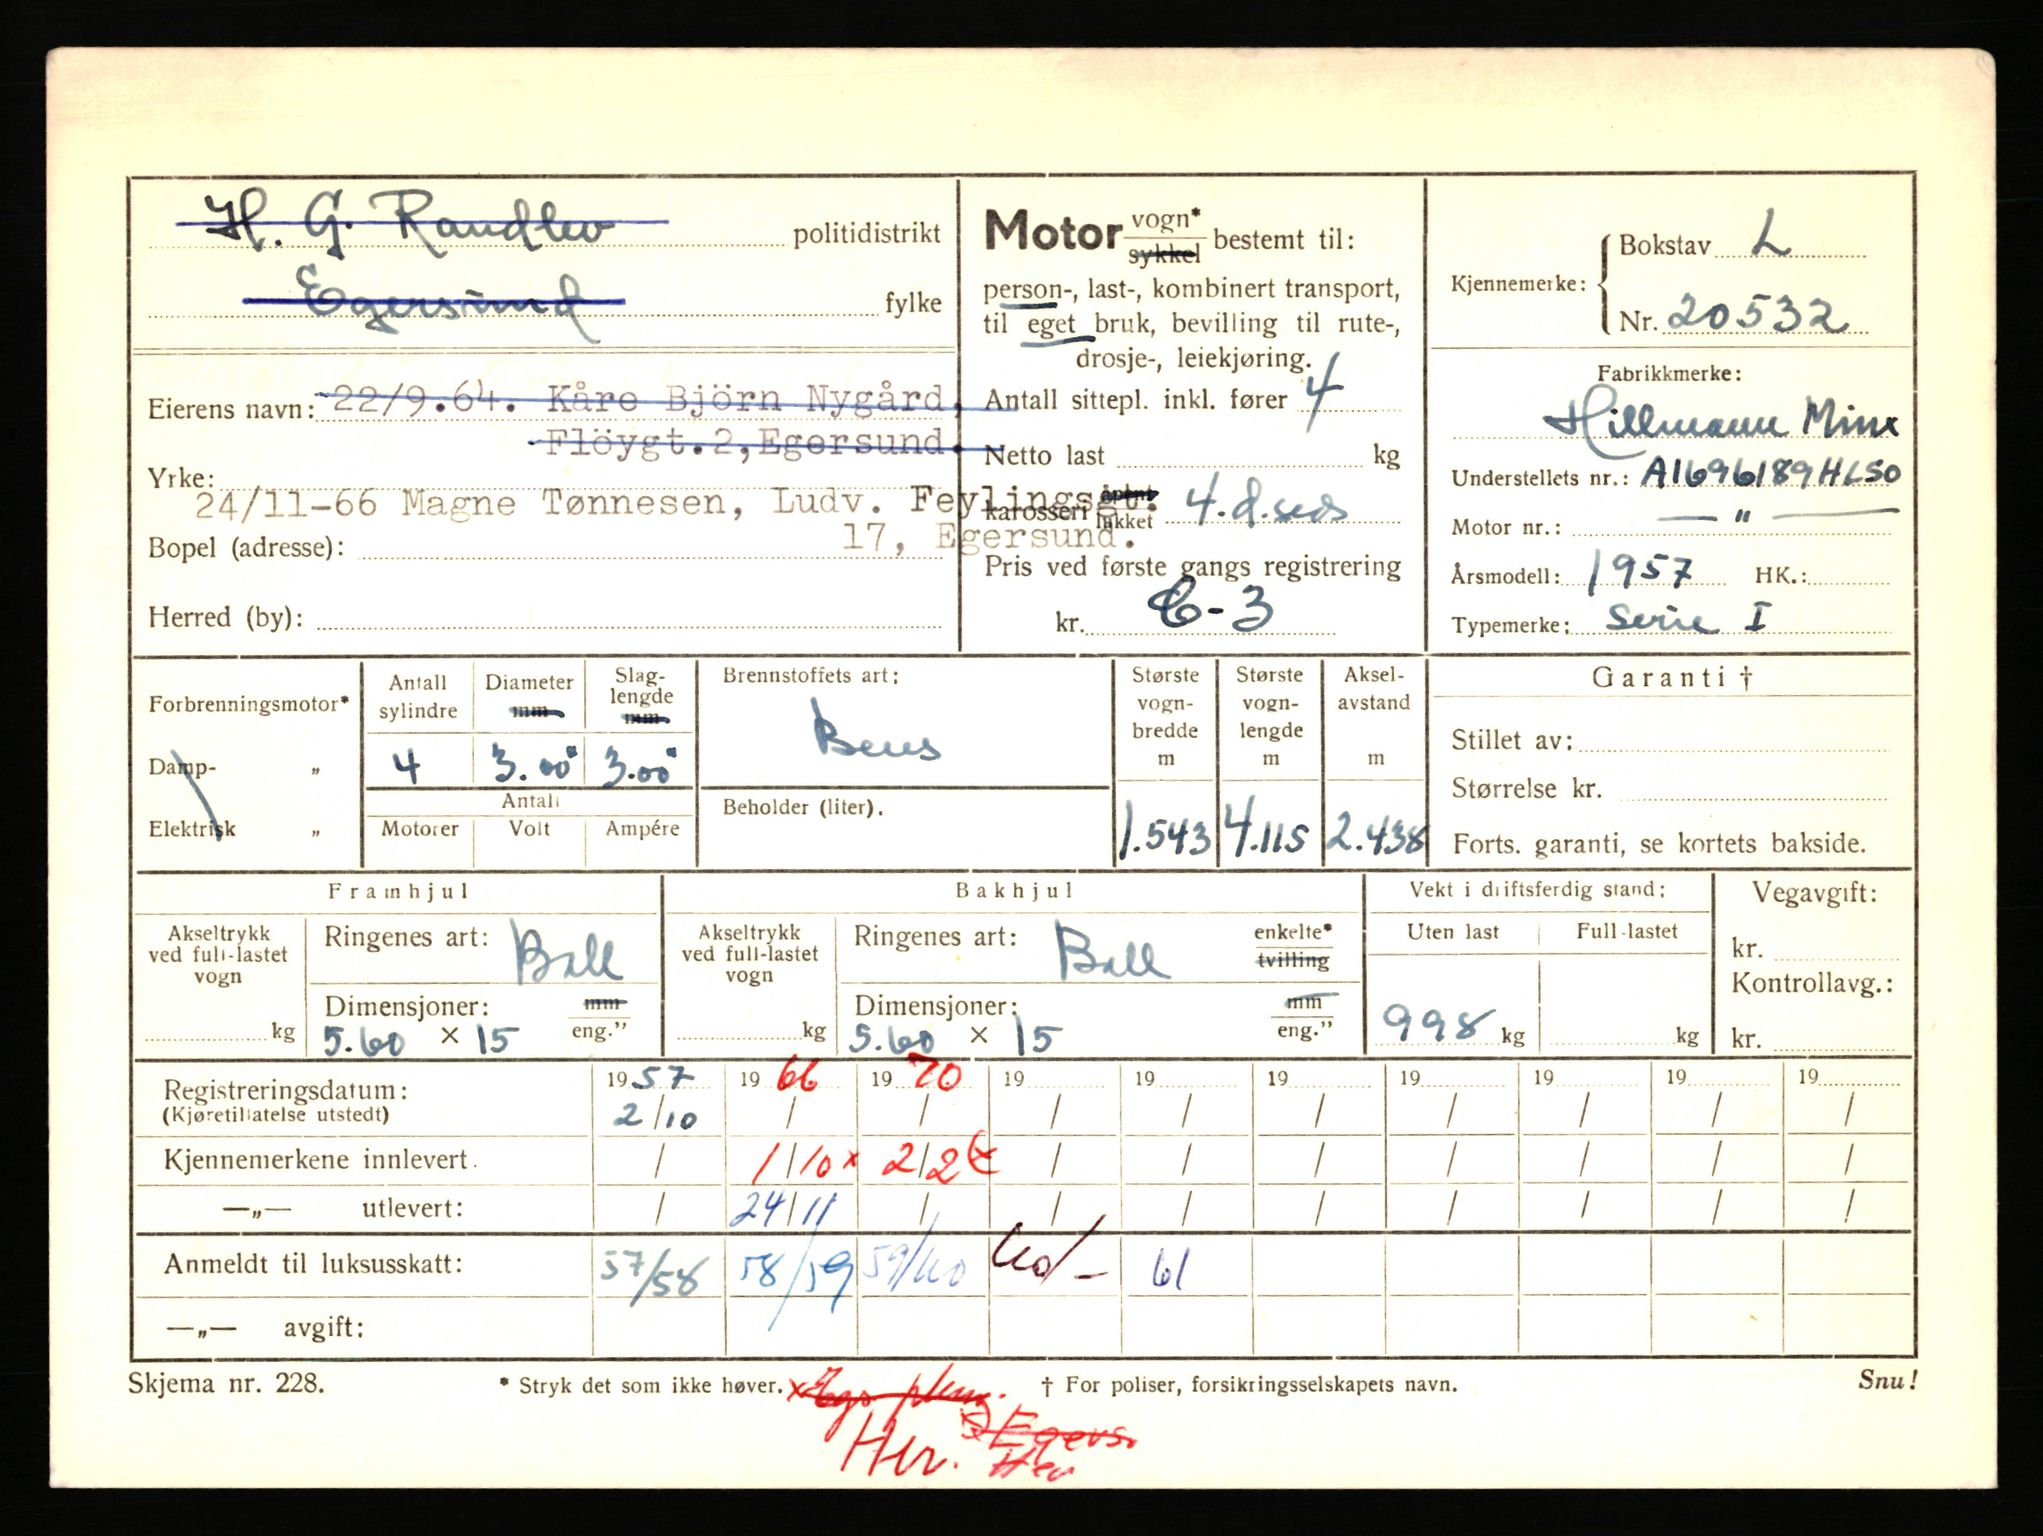 H. G. Randlev politidistrikt
Egersund fylke
Eierens navn: 22/9.64. Kåre Björn Nygård,
Flöygt.2, Egersund.
Yrke:
24/11-66 Magne Tønnesen, Ludv. Feylingsgt.
17, Egersund.
Bopel (adresse):
Herred (by):
Motor vogn* sykkel bestemt til:
person-, last-, kombinert transport,
til eget bruk, bevilling til rute-,
drosje-, leiekjøring.
Antall sittepl. inkl. fører 4
Netto last kg
karosseri åpent lukket 4.d.seds
Pris ved første gangs registrering
kr. C-3
Kjennemerke: Bokstav L
Nr. 20532
Fabrikkmerke:
Hillmann Minx
Understellets nr.: A1696189HLSO
Motor nr.: — " —
Årsmodell: 1957 HK.:
Typemerke: Serie I
Forbrenningsmotor*
Damp- „
Elektrisk „
Antall sylindre
4
Diameter mm
3.00"
Slag-lengde mm
3.00"
Antall
Motorer Volt Ampére
Brennstoffets art:
Bens
Beholder (liter).
Største vogn-bredde m
1.543
Største vogn-lengde m
4.115
Aksel-avstand m
2.438
Garanti †
Stillet av:
Størrelse kr.
Forts. garanti, se kortets bakside.
Framhjul
Akseltrykk ved full-lastet vogn
kg
Ringenes art: Ball
Dimensjoner: mm
5.60 × 15 eng.”
Bakhjul
Akseltrykk ved full-lastet vogn
kg
Ringenes art: Ball enkelte* tvilling
Dimensjoner: mm
5.60 × 15 eng.”
Vekt i driftsferdig stand:
Uten last Full-lastet
998 kg kg
Vegavgift:
kr.
Kontrollavg.:
kr.
Registreringsdatum: 1957 1966 1970 19 19 19 19 19 19 19
(Kjøretillatelse utstedt) 2/10 / / / / / / / / /
Kjennemerkene innlevert. / 1/10 x 2/2 (x / / / / / / /
—„— utlevert: / 24/11 / / / / / / / /
Anmeldt til luksusskatt: 57/58 58/59 59/60 60/- 61
—„— avgift:
Skjema nr. 228. * Stryk det som ikke høver. † For poliser, forsikringsselskapets navn. Snu!
x Egs.
Her. (x) Egers.
Her